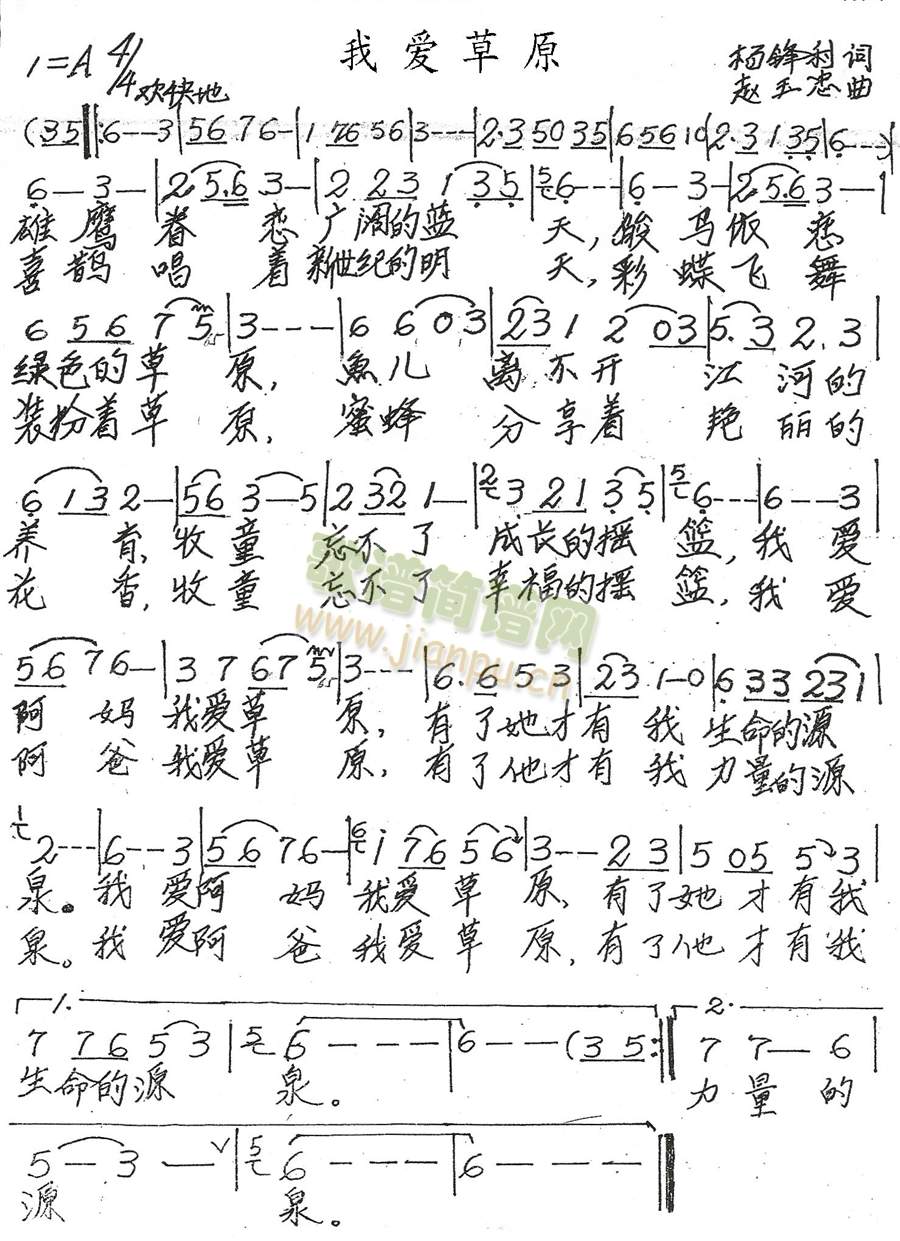 我爱草原
1=A 4/4 欢快地
杨锋利词
赵玉忠曲
(35‖:6--3|56 7 6-|1 76 5 6|3---|2·3 50 35|6 56 1 0|2·3 1 35|6---)
6-3-|2 5·6 3-|2 23 1 35|5 6---|6-3-|2·5·6 3-|
雄鹰眷恋广阔的蓝天,骏马依恋
喜鹊唱着新世纪的明天,彩蝶飞舞
6 56 7 5|3---|6 6 0 3|23 1 2 03|5·3 2·3|
绿色的草原,鱼儿离不开江河的
装扮着草原,蜜蜂分享着艳丽的
6 13 2-|56 3-5|2 32 1-|2 3 21 3 5|5 6---|6--3|
养育,牧童忘不了成长的摇篮,我爱
花香,牧童忘不了幸福的摇篮,我爱
歌谱简谱网
www.jianpu.cn
56 7 6-|3 7 67 5|3---|6·6 5 3|23 1-0|6 33 231|
阿妈我爱草原,有了她才有我生命的源
阿爸我爱草原,有了他才有我力量的源
1 2---|6--3|56 7 6-|6 i 76 5 6|3--2 3|5 05 5 3|
泉。我爱阿妈我爱草原,有了她才有我
泉。我爱阿爸我爱草原,有了他才有我
1. 2.
7 76 5 3|5 6---|6--(35:‖7 7-6
生命的源泉。力量的
5-3-∨|5 6---|6---‖
源泉。